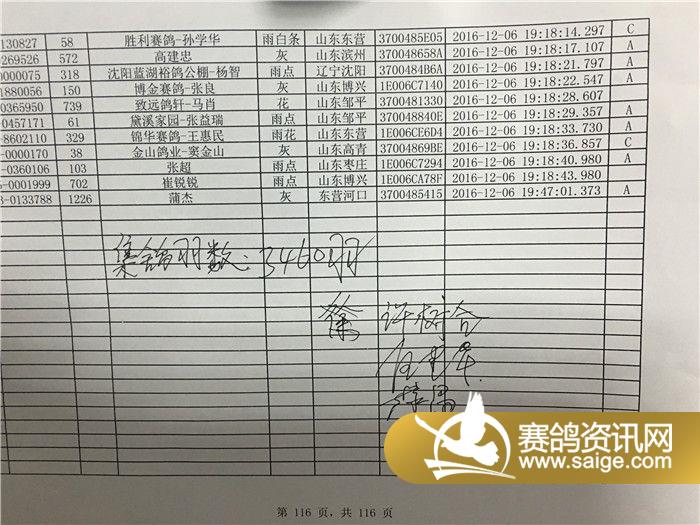 130827 58 胜利赛鸽-孙学华 雨白条 山东东营 3700485E05 2016-12-06 19:18:14.297 C
0269526 572 高建忠 灰 山东滨州 370048658A 2016-12-06 19:18:17.107 A
-0000075 318 沈阳蓝湖裕鸽公棚-杨智 雨点 辽宁沈阳 3700484B6A 2016-12-06 19:18:21.797 A
1880056 150 博金赛鸽-张良 灰 山东博兴 1E006C7140 2016-12-06 19:18:22.547 A
0365950 739 致远鸽轩-马肖 花 山东邹平 3700481330 2016-12-06 19:18:28.607
-0457171 61 黛溪家园-张益瑞 雨点 山东邹平 370048840E 2016-12-06 19:18:29.357 A
-8602110 329 锦华赛鸽-王惠民 雨花 山东东营 1E006CE6D4 2016-12-06 19:18:33.730 A
-0000170 38 金山鸽业-窦金山 灰 山东高青 37004869BE 2016-12-06 19:18:36.857 C
-0360106 103 张超 雨点 山东枣庄 1E006C7294 2016-12-06 19:18:40.980 A
-0001999 702 崔锐锐 雨点 山东博兴 1E006CA78F 2016-12-06 19:18:43.980
-0133788 1226 蒲杰 灰 东营河口 3700485415 2016-12-06 19:47:01.373 A
集鸽羽数:3460羽
许树合
赛鸽资讯网
www.saige.com
第 116 页，共 116 页